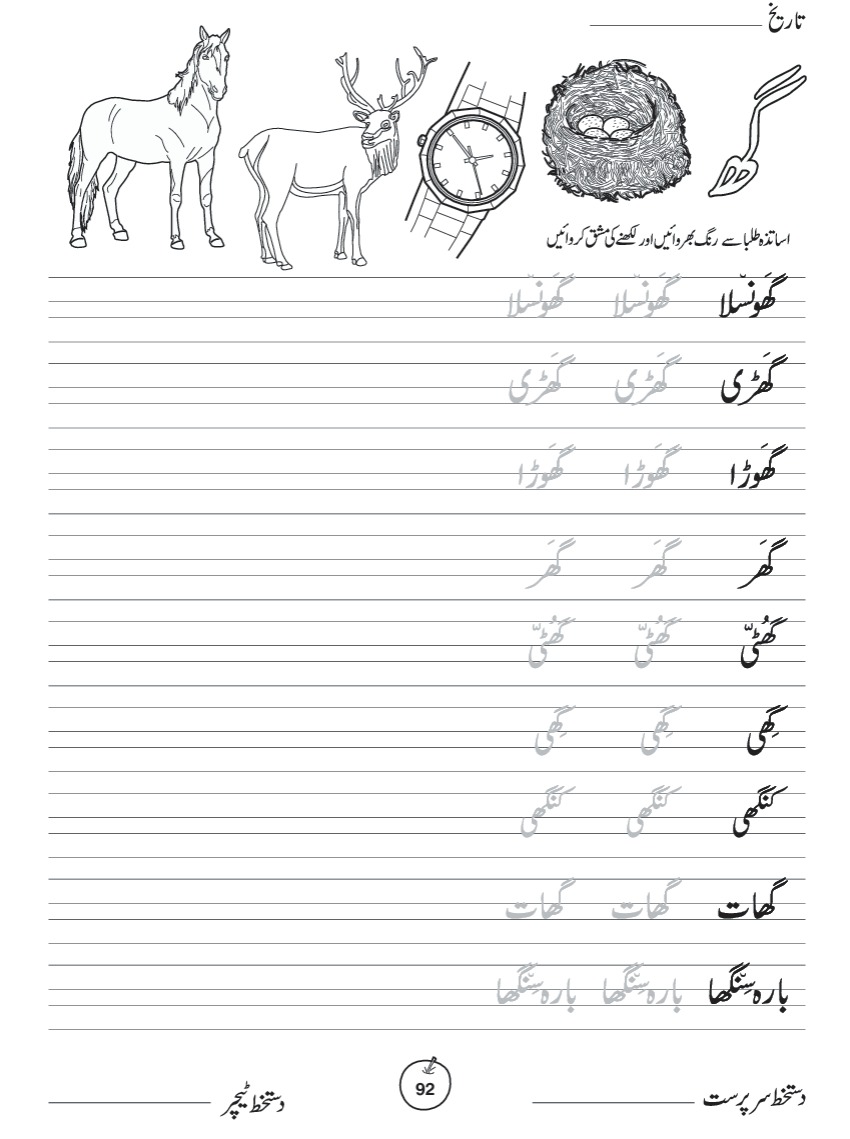 تاریخ
اساتذہ طلبا سے رنگ بھروائیں اور لکھنے کی مشق کروائیں
گھَونسْلا گھَونسْلا گھَونسْلا
گھَڑی گھَڑی گھَڑی
گھَوڑا گھَوڑا گھَوڑا
گھَر گھَر گھَر
گھُٹّی گھُٹّی گھُٹّی
گھِی گھِی گھِی
کنگھی کنگھی کنگھی
گھات گھات گھات
بارہ سِنگھا بارہ سِنگھا بارہ سِنگھا
دستخط سرپرست
92
دستخط ٹیچر